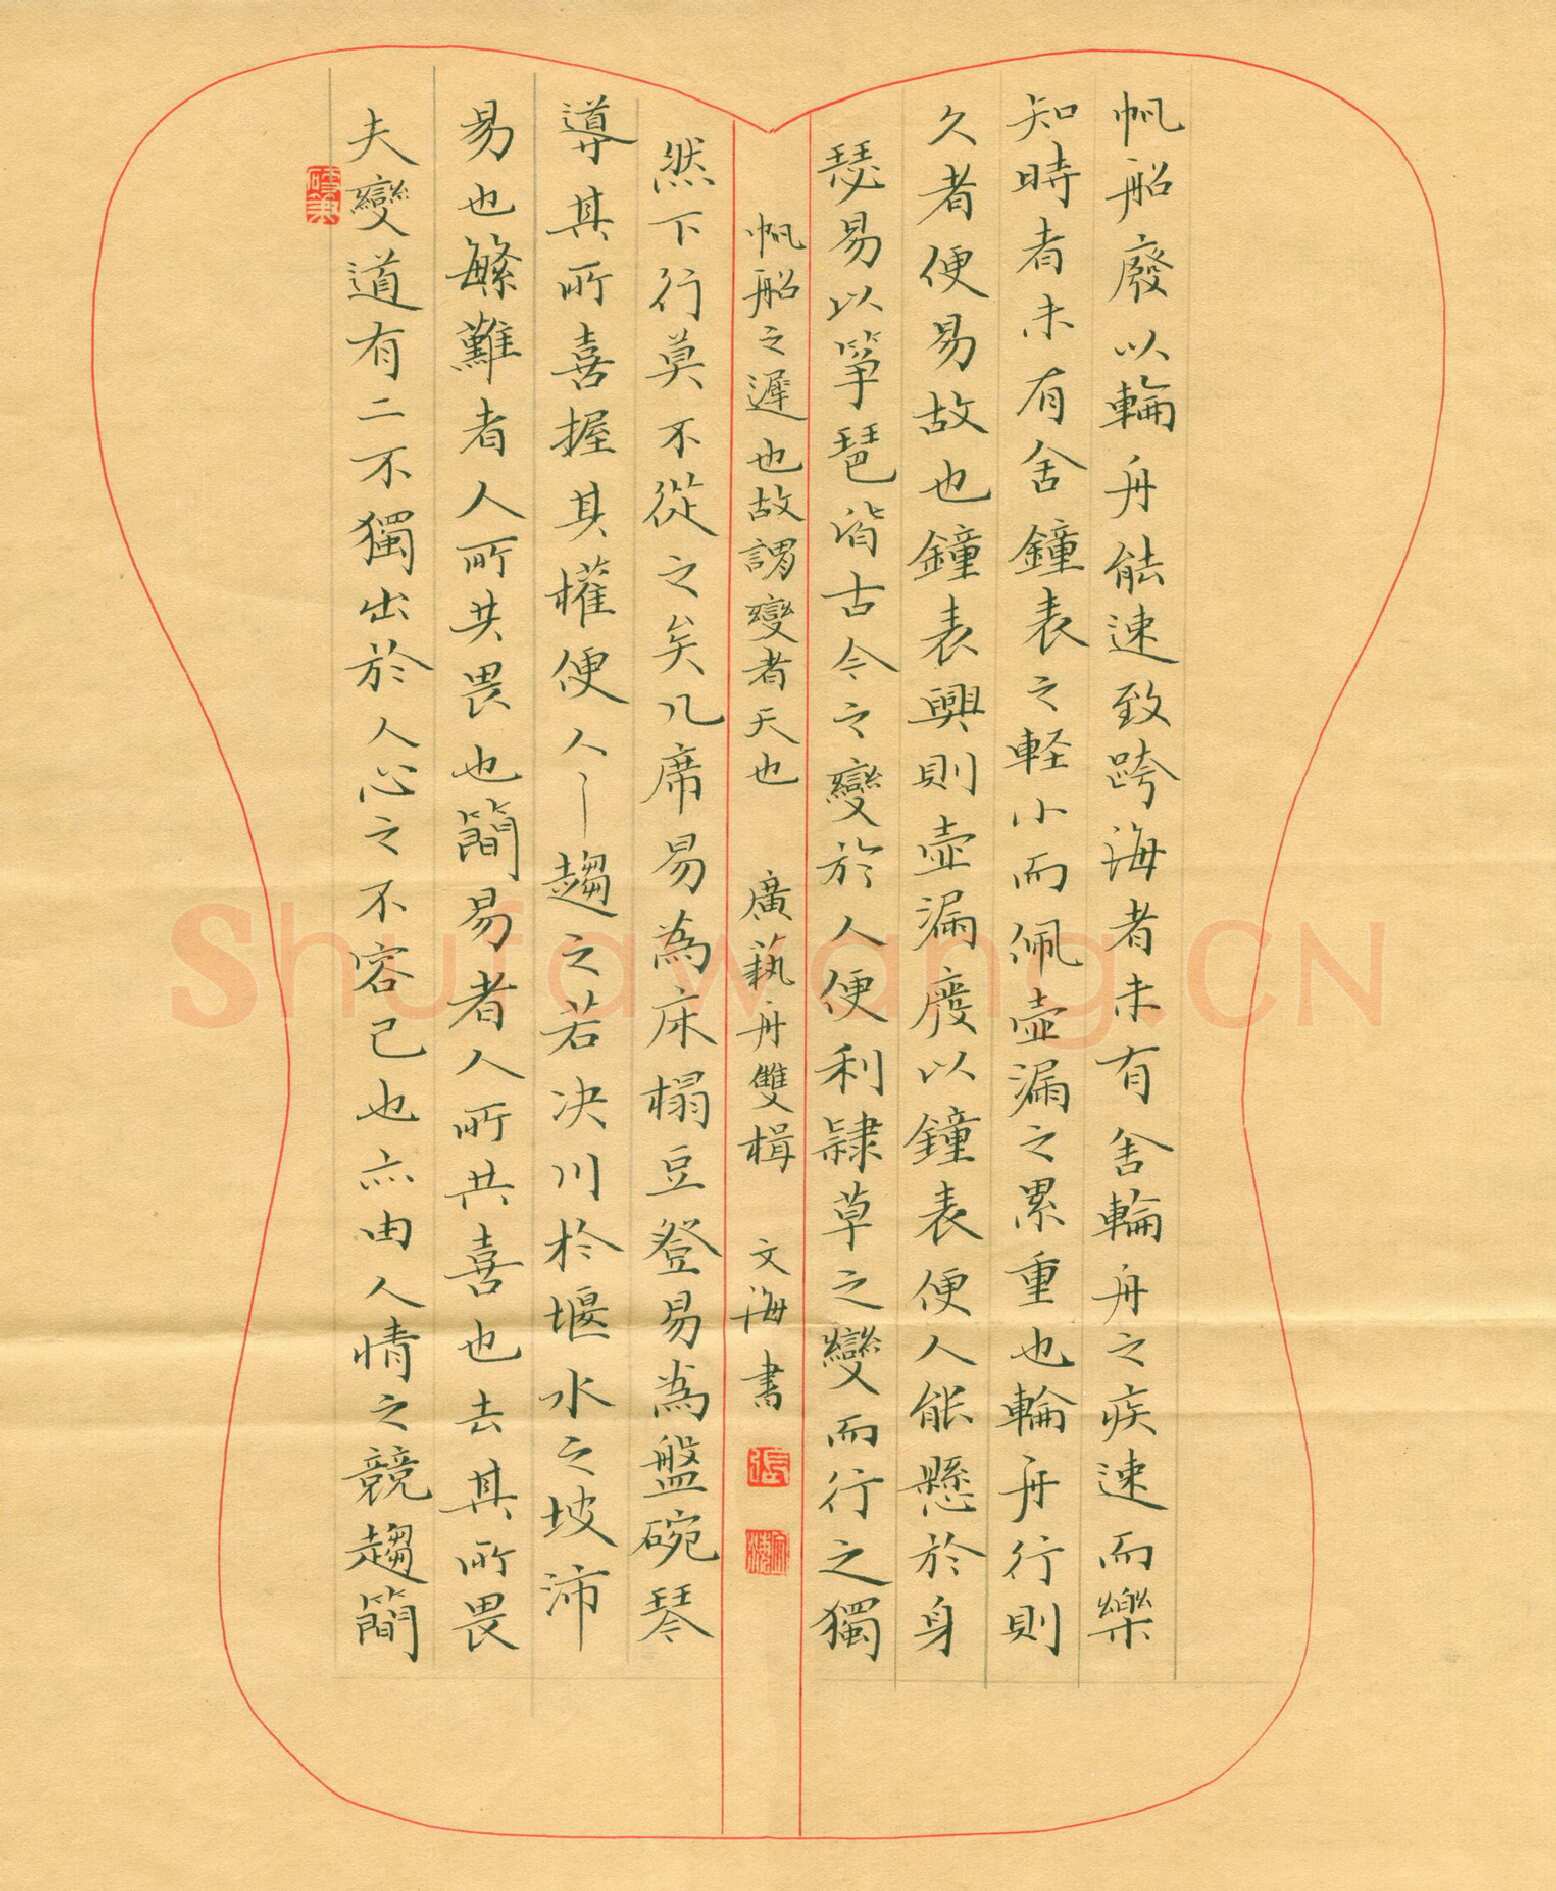 夫變道有二不獨出於人心之不容已也亦由人情之競趨簡
易也繁難者人所共畏也簡易者人所共喜也去其所畏
導其所喜握其權便人丨趨之若决川於堰水之坡沛
然下行莫不從之矣几席易為床榻豆登易為盤碗琴
瑟易以箏琶皆古今之變於人便利隸草之變而行之獨
久者便易故也鐘表興則壺漏廢以鐘表便人能懸於身
知時者未有舍鐘表之軽小而佩壺漏之累重也輪舟行則
帆船廢以輪舟能速致跨海者未有舍輪舟之疾速而樂
帆船之遲也故謂變者天也 廣藝舟雙楫 文海書
張
Shufawang.CN